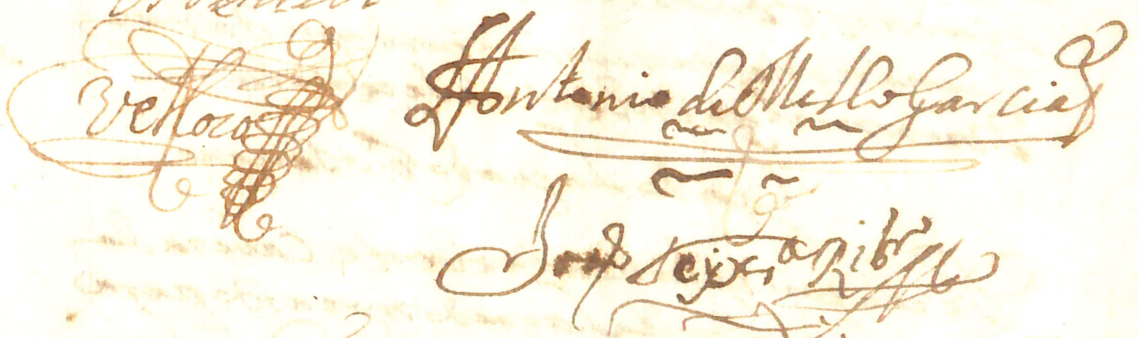 Velloco
Antonio de Mello Garcia
João Teixra Ribro